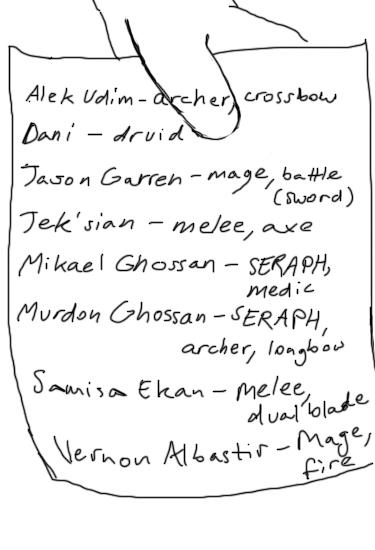 Alek Udim - archer, crossbow
Dani - druid
Jason Garren - mage, battle
(sword)
Jek'sian - melee, axe
Mikael Ghossan - SERAPH,
medic
Murdon Ghossan - SERAPH,
archer, longbow
Samisa Ekan - melee,
dual blade
Vernon Albastir - Mage,
fire